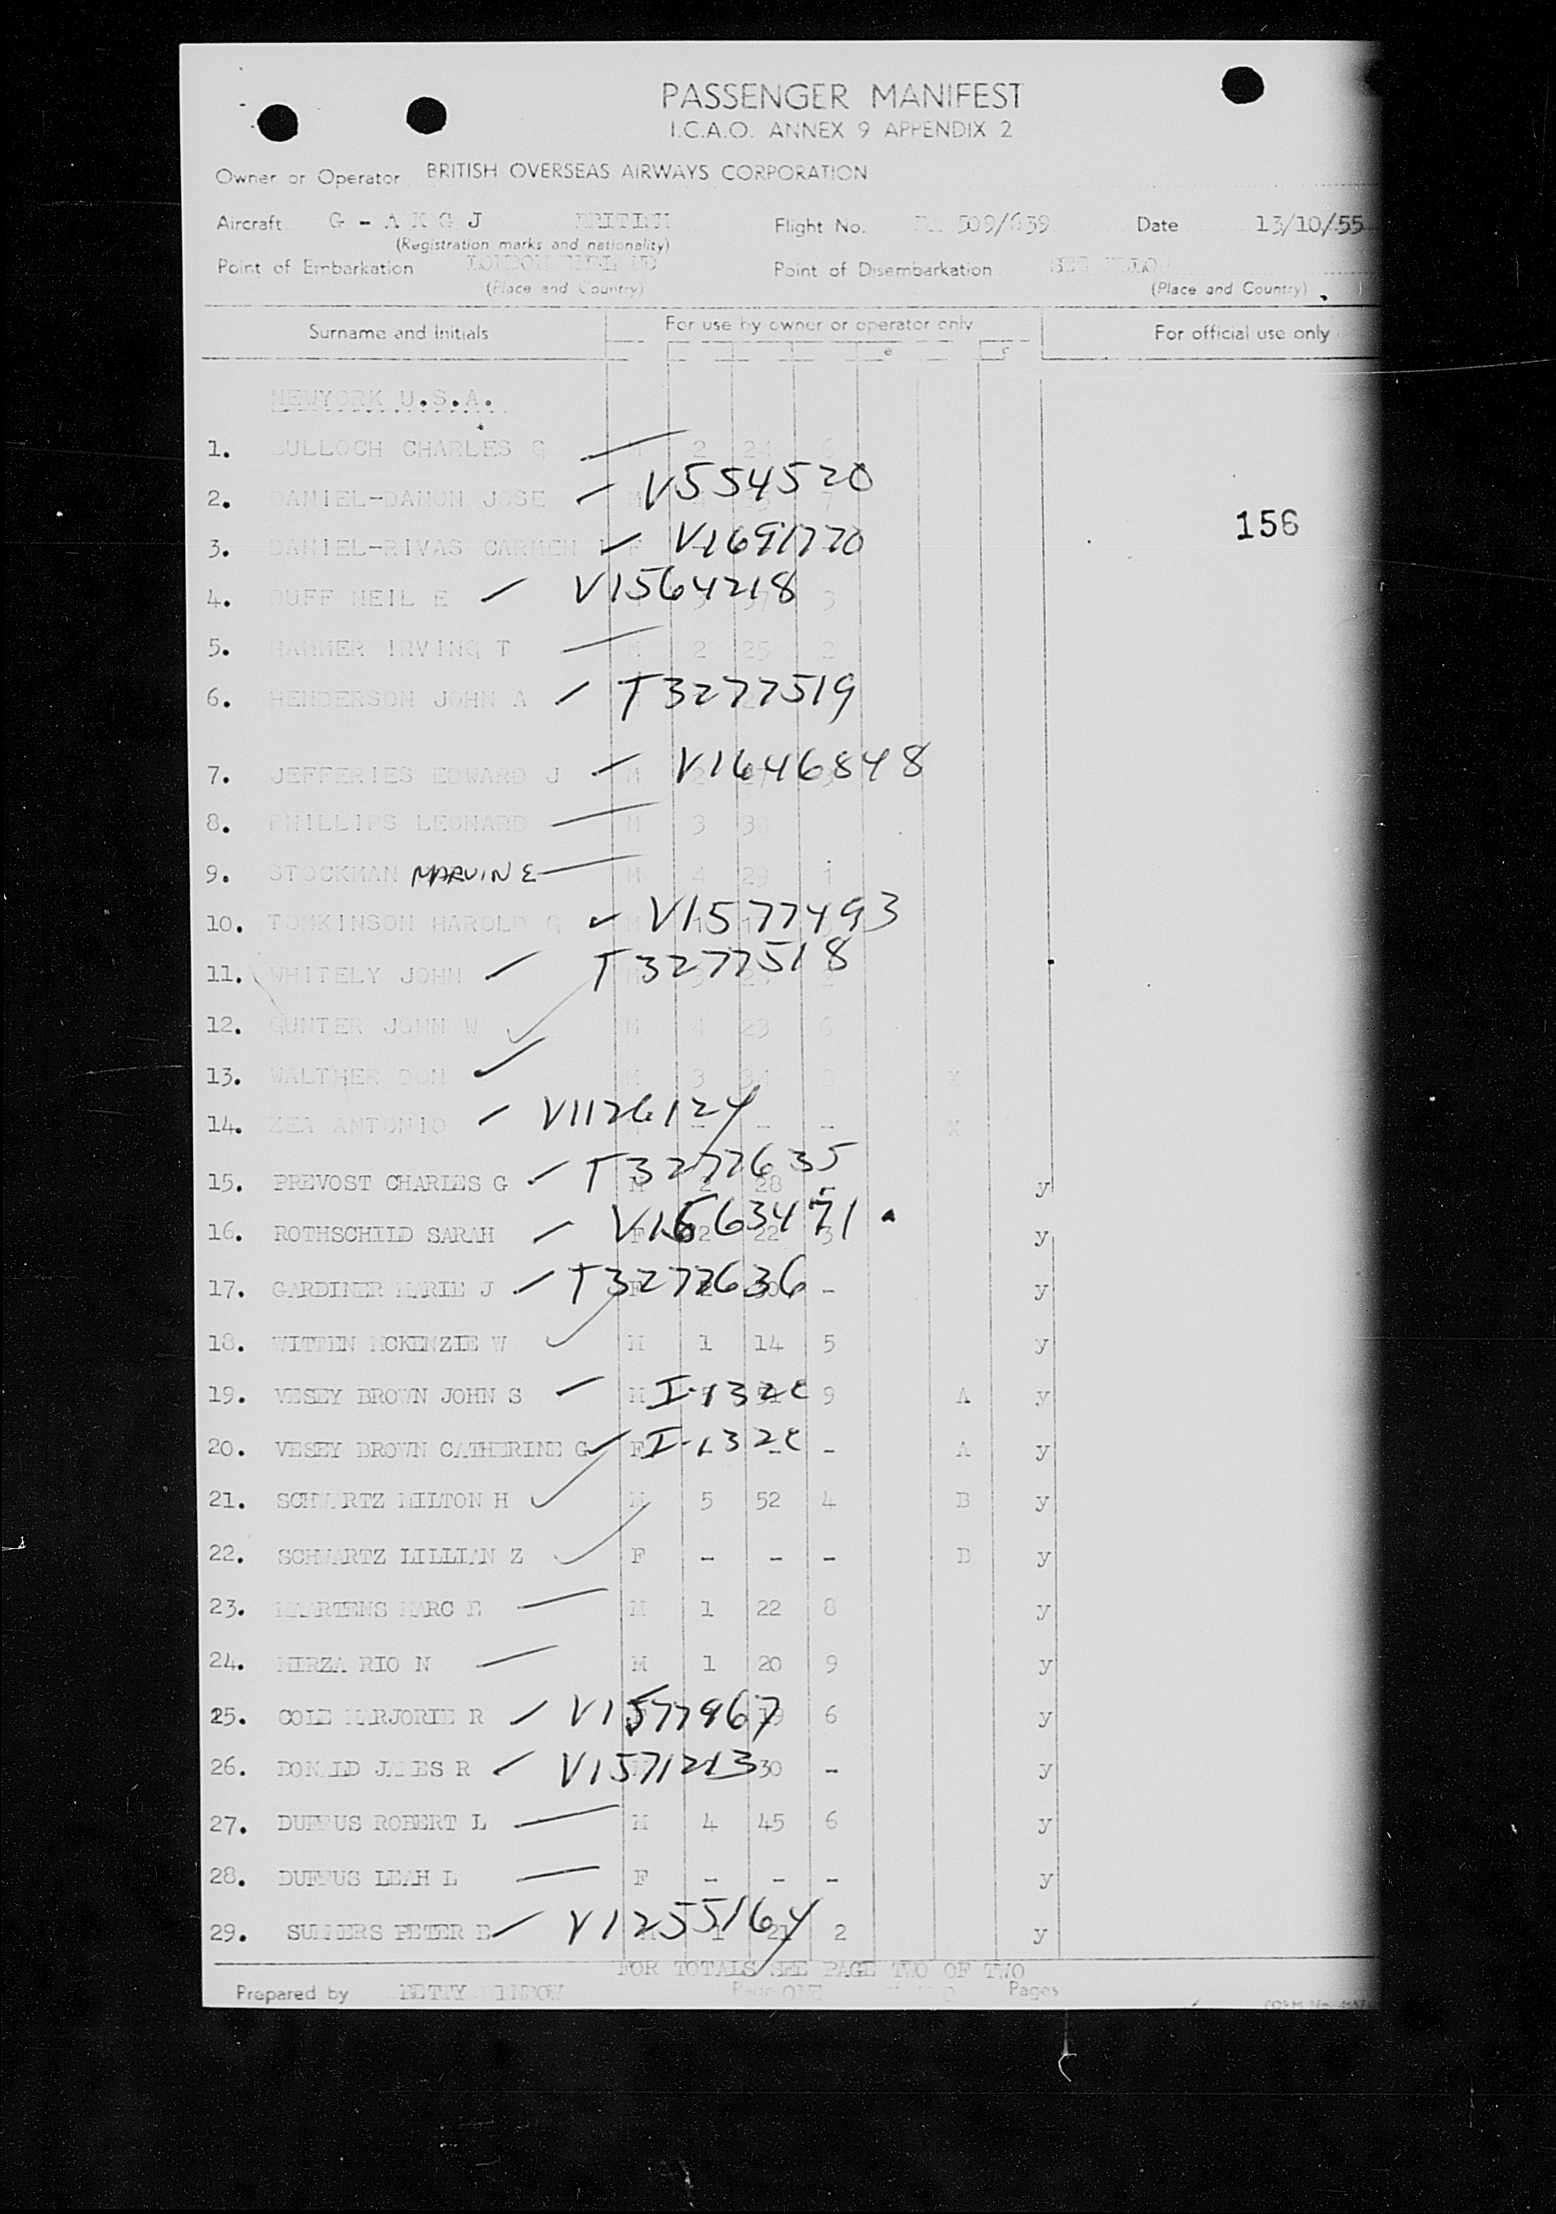 PASSENGER MANIFEST
I.C.A.O. ANNEX 9 APPENDIX 2
Owner or Operator BRITISH OVERSEAS AIRWAYS CORPORATION
Aircraft G - A K G J BRITISH Flight No. 509/639 Date 13/10/55
(Registration marks and nationality)
Point of Embarkation LONDON Point of Disembarkation SEE BELOW
(Place and Country) (Place and Country)
Surname and Initials For use by owner or operator only For official use only
e f
NEWYORK U.S.A.
1. BULLOCH CHARLES G 2 24 6
2. DANIEL-DAMON JOSE M V554520 7
156
3. DANIEL-RIVAS CARMEN F V1691770
4. DUFF NEIL E V1564218 3
5. HAMMER IRVING T M 2 25 2
6. HENDERSON JOHN A T3277519
7. JEFFERIES EDWARD J M V1646848
8. PHILLIPS LEONARD M 3
9. STOCKMAN MARVIN E M 4 29 1
10. TOMKINSON HAROLD G M V1577493
11. WHITELY JOHN T3277518
12. GUNTER JOHN W M 4 23 6
13. WALTHER DON M 3 X
14. ZEA ANTONIO V1126124 - - - X
15. PREVOST CHARLES G T3277635 M 2 28 - y
16. ROTHSCHILD SARAH V1563471 F 2 22 3 y
17. GARDINER MARIE J T3277636 F - y
18. WITTEN MCKENZIE W M 1 14 5 y
19. VESEY BROWN JOHN S M I-132c 9 A y
20. VESEY BROWN CATHERINE G F I-132c - - A y
21. SCHWARTZ MILTON H M 5 52 4 B y
22. SCHWARTZ LILLIAN Z F - - - B y
23. MAARTENS MARC E M 1 22 8 y
24. MIRZA RIO N M 1 20 9 y
25. COLE MARJORIE R V1577967 19 6 y
26. DONALD JAMES R V1571213 30 - y
27. DUFFUS ROBERT L M 4 45 6 y
28. DUFFUS LEAH L F - - - y
29. SUMMERS PETER E V1255164 M 1 21 2 y
FOR TOTALS SEE PAGE TWO OF TWO
Prepared by BETTY Page ONE Pages